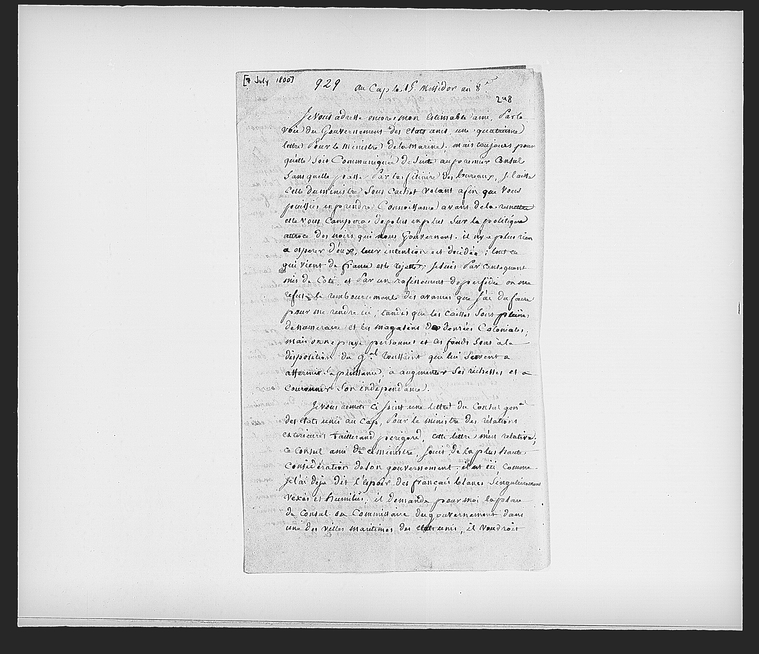 [7 July 1800] 929 au Cap le 18 Messidor an 8e
248
Je vous adresse encore mon estimable ami, Par la
voie du Gouvernement des etats unis une quatrieme
lettre Pour le Ministre de la Marine, mais toujours pour
qu'elle soit Communiquée de suite au premier Consul
sans quelle passe Par la filiere des bureaux, Je laisse
celle du ministre sous cachet volant afin que vous
puissiez en prendre Connoissance avant de la remettre
elle vous Convaincra de plus en plus sur la politique
atroce des noirs qui nous Gouvernent. il n'y a plus rien
a esperer d'eux, leur intention est decidée; tout ce
qui vient de france est rejetté; Je suis Par Consequent
mis de Coté, et Par un rafinement de perfidie on me
refuse le remboursement des avances que J'ai du faire
pour me rendre ici, tandis que les Caisses sont pleines
de numeraire et les magasins de denrées Coloniales,
mais on ne paye personne et les fonds sont a la
disposition du Gal Toussaint qui lui servent a
affermir sa puissance, a augmenter ses richesses et a
couronner son independance.
Je vous remets ci Joint une lettre du Consul genal
des etats unis au Cap, Pour le ministre des relations
exterieures Taillerand perigord, cette lettre m'est relative,
ce Consul ami de ce ministre, Jouit de la plus haute
Consideration de son gouvernement. il est ici Comme
Je l'ai deja dit l'espoir des français blancs singulierement
vexés et humiliés, il demande pour moi la place
de Consul ou Commissaire du gouvernement dans
une des villes maritimes des etats unis, il voudroit